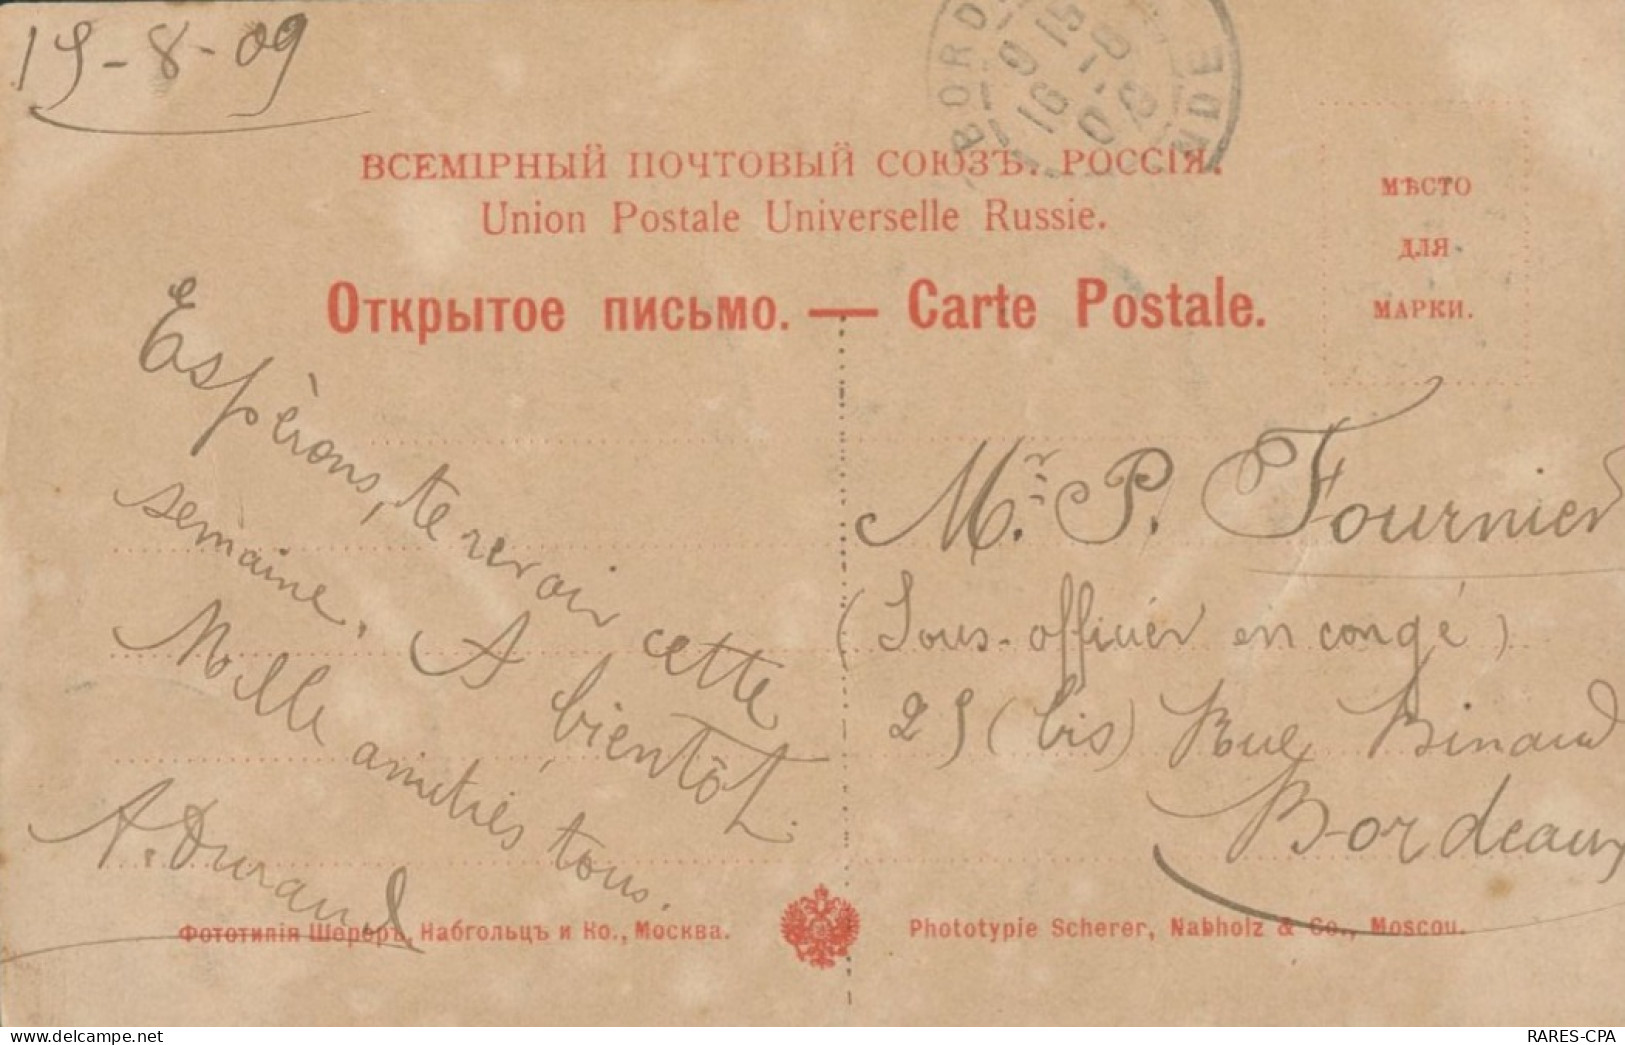 15-8-09
BORD NDE
9 15
16 -8
09
ВСЕМІРНЫЙ ПОЧТОВЫЙ СОЮЗЪ. РОССІЯ.
Union Postale Universelle Russie.
Открытое письмо. — Carte Postale.
МѢСТО
ДЛЯ
МАРКИ.
Espèrons, te revoir cette
semaine. A bientôt.
Mille amitiés tous.
A. Durand
Mr. P. Fournier
(Sous-officier en congé)
25 (bis) Rue Binaud
Bordeaux
Фототипія Шереръ, Набгольцъ и Ко., Москва.
Phototypie Scherer, Nabholz & Co., Moscou.
www.delcampe.net
RARES-CPA